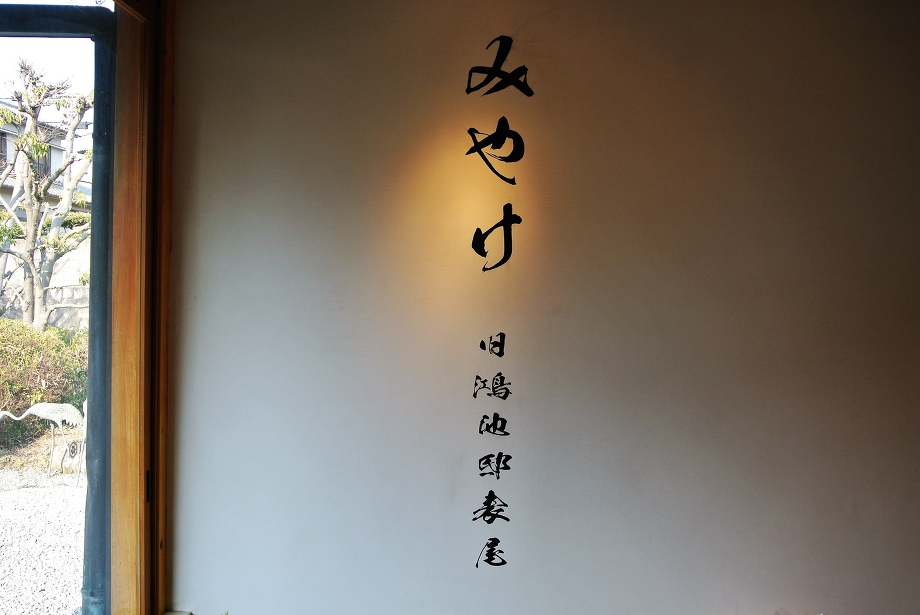 みやけ
旧鴻池邸表屋